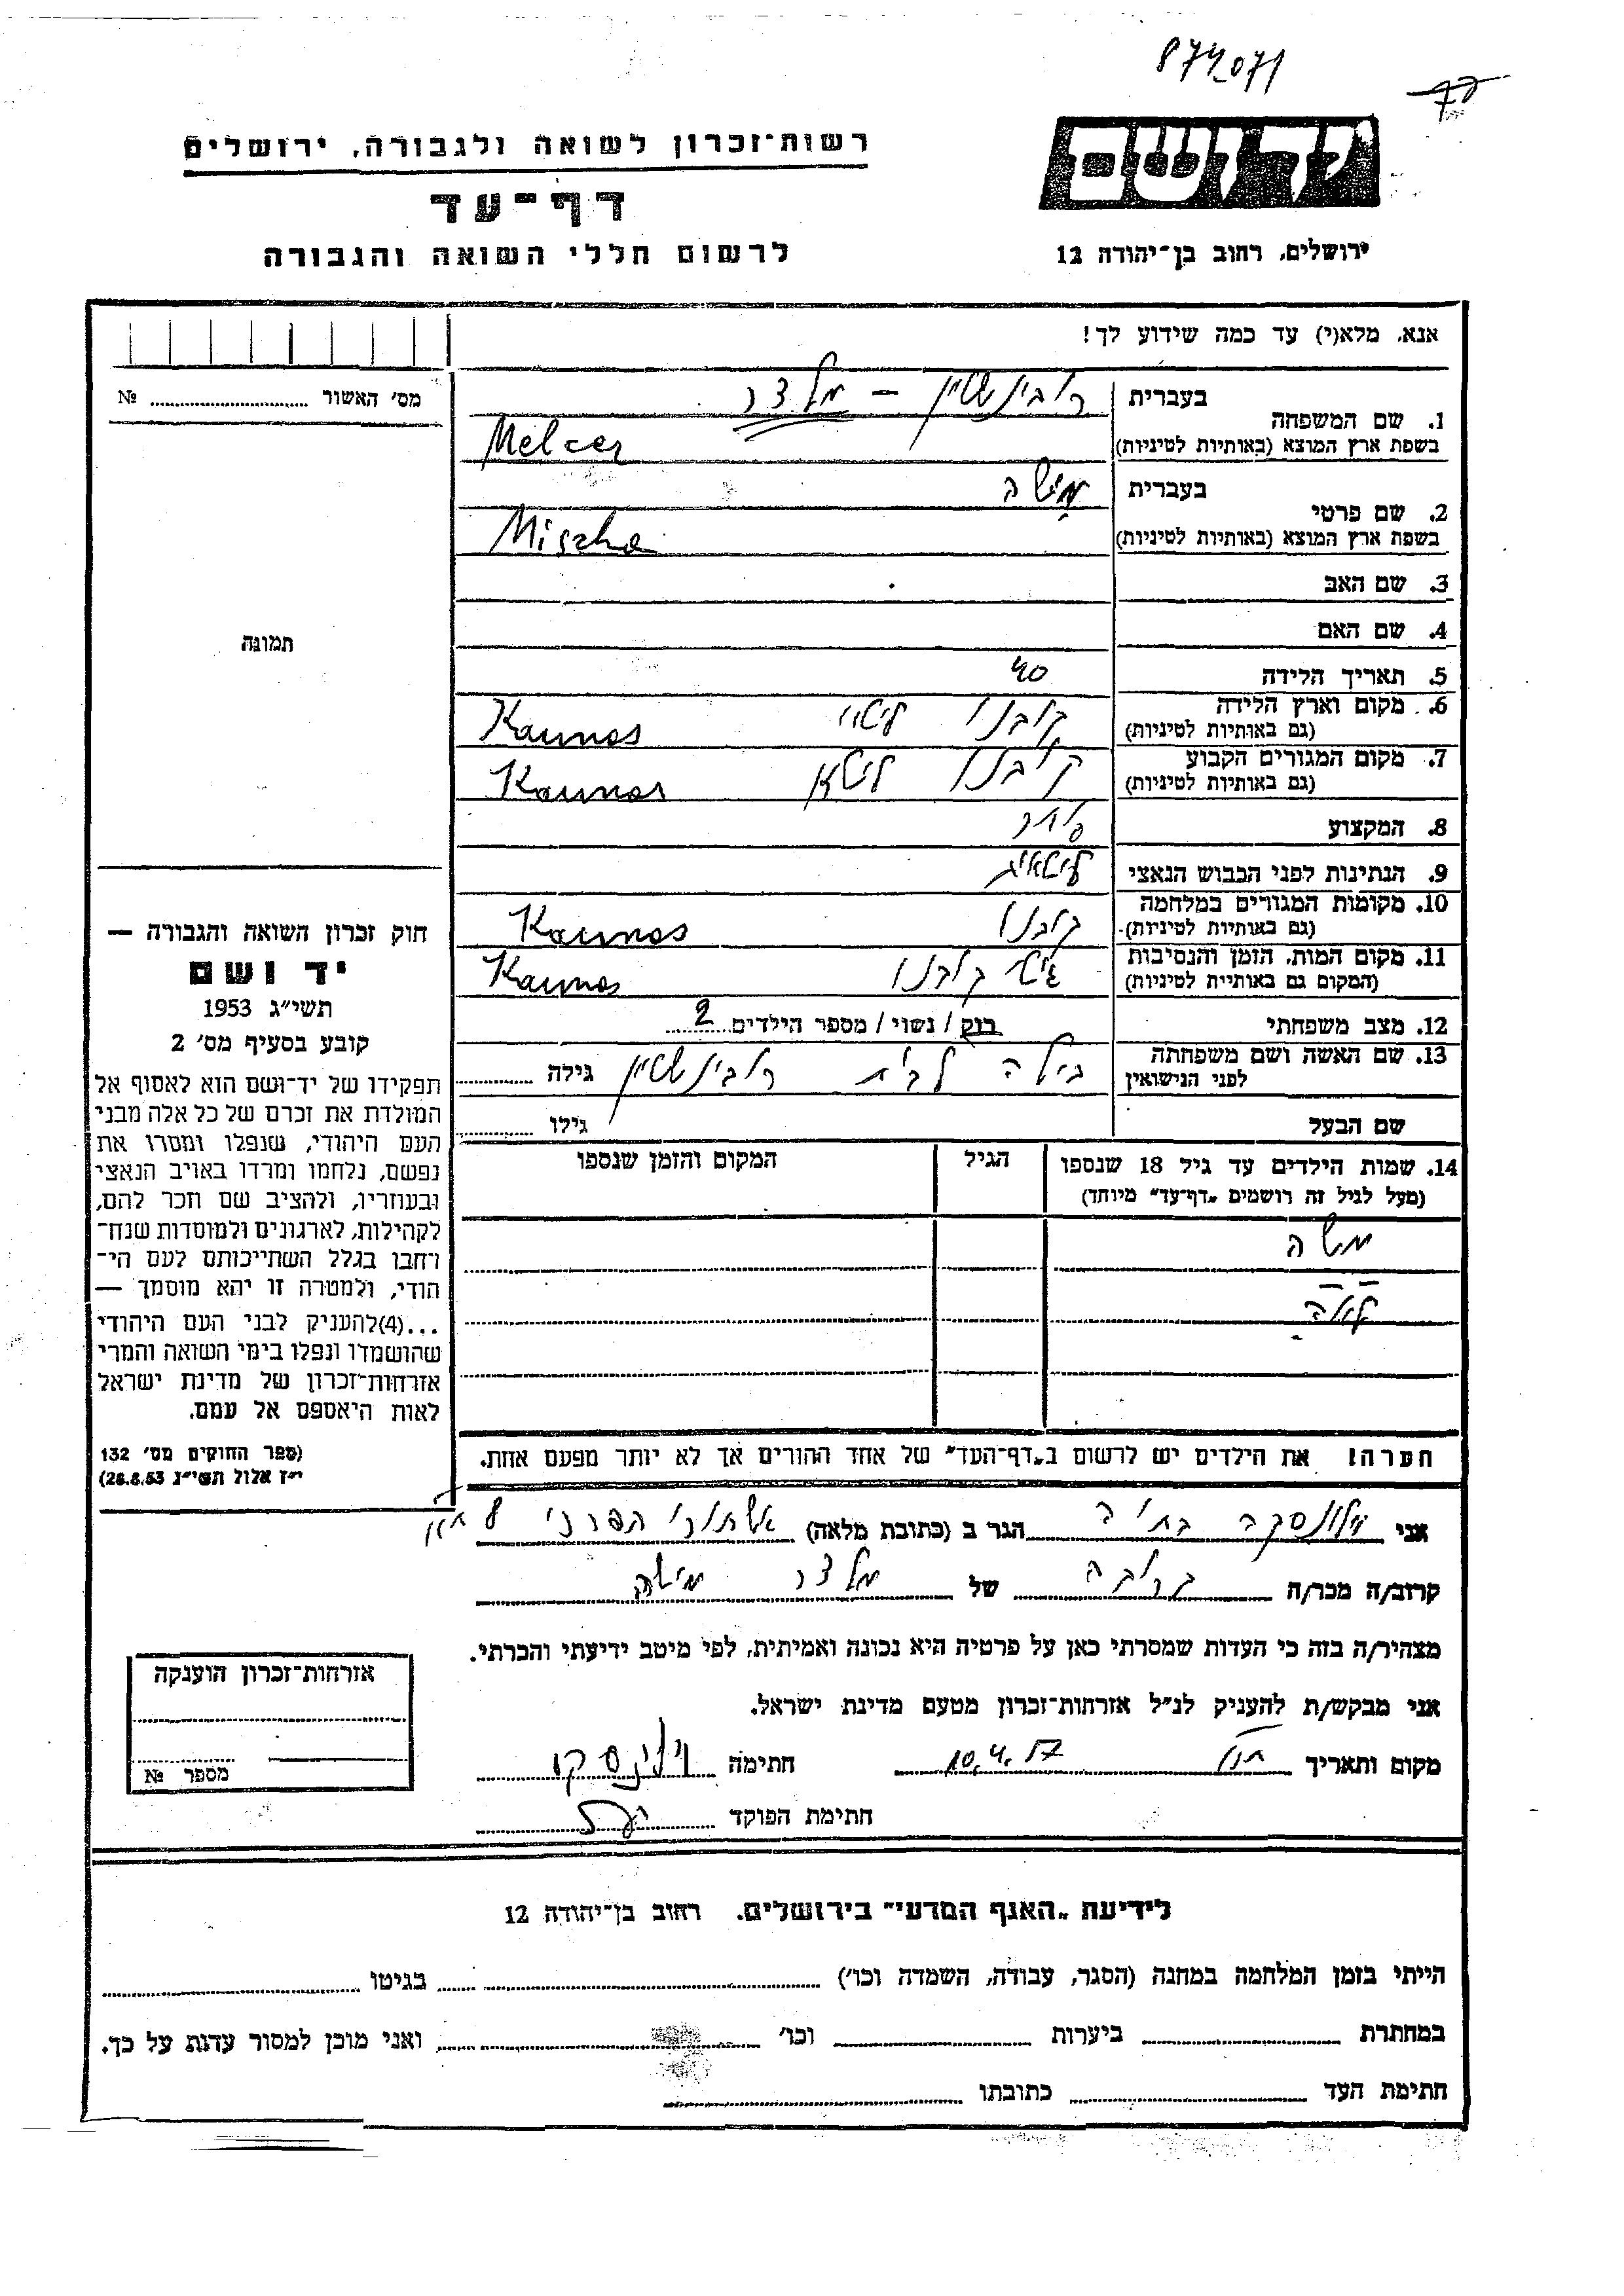 874071
דף
ידושם
רשות־זכרון לשואה ולגבורה, ירושלים
דף־עד
לרשום חללי השואה והגבורה
ירושלים, רחוב בן־יהודה 12
אנא, מלא(י) עד כמה שידוע לך!
מס׳ האשור № 
1. שם המשפחה
בעברית רובינשטין – מלצר
בשפת ארץ המוצא (באותיות לטיניות) Melcer
2. שם פרטי
בעברית מישה
בשפת ארץ המוצא (באותיות לטיניות) Mischa
3. שם האב
4. שם האם
5. תאריך הלידה 40
6. מקום וארץ הלידה
(גם באותיות לטיניות) קובנו Kaunas
7. מקום המגורים הקבוע
(גם באותיות לטיניות) קובנו ליטא Kaunas
8. המקצוע סוחר
9. הנתינות לפני הכבוש הנאצי ליטאית
10. מקומות המגורים במלחמה
(גם באותיות לטיניות) קובנו Kaunas
11. מקום המות, הזמן והנסיבות
(המקום גם באותיית לטיניות) גיטו קובנו Kaunas
12. מצב משפחתי רוק / נשוי / מספר הילדים 2
13. שם האשה ושם משפחתה
לפני הנישואין ביילה לבית רובינשטין גילה
שם הבעל גילו
14. שמות הילדים עד גיל 18 שנספו
(מעל לגיל זה רושמים „דף־עד״ מיוחד)
הגיל
המקום והזמן שנספו
משה
לאה
הערה! את הילדים יש לרשום ב„דף־העד״ של אחד ההורים אך לא יותר מפעם אחת.
תמונה
חוק זכרון השואה והגבורה —
יד ושם
תשי״ג 1953
קובע בסעיף מס׳ 2
תפקידו של יד־ושם הוא לאסוף אל
המולדת את זכרם של כל אלה מבני
העם היהודי, שנפלו ומסרו את
נפשם, נלחמו ומרדו באויב הנאצי
ובעוזריו, ולהציב שם וזכר להם,
לקהילות, לארגונים ולמוסדות שנח־
רחבו בגלל השתייכותם לעם הי־
הודי, ולמטרה זו יהא מוסמך —
...(4)להעניק לבני העם היהודי
שהושמדו ונפלו בימי השואה והמרי
אזרחות־זכרון של מדינת ישראל
לאות היאספם אל עמם.
(ספר החוקים מס׳ 132
י״ז אלול תשי״ג 28.8.53)
אני בתיה הגר ב (כתובת מלאה) אשתורי הפרחי 8
קרוב/ה מכר/ה קרובה של מלצר מישה
מצהיר/ה בזה כי העדות שמסרתי כאן על פרטיה היא נכונה ואמיתית, לפי מיטב ידיעתי והכרתי.
אני מבקש/ת להעניק לנ״ל אזרחות־זכרון מטעם מדינת ישראל.
מקום ותאריך 10.4.57 חתימה
חתימת הפוקד
אזרחות־זכרון הוענקה
מספר №
לידיעת „האגף המדעי״ בירושלים, רחוב בן־יהודה 12
הייתי בזמן המלחמה במחנה (הסגר, עבודה, השמדה וכו׳) בגיטו
במחתרת ביערות וכו׳ ואני מוכן למסור עדות על כך.
חתימת העד כתובתו